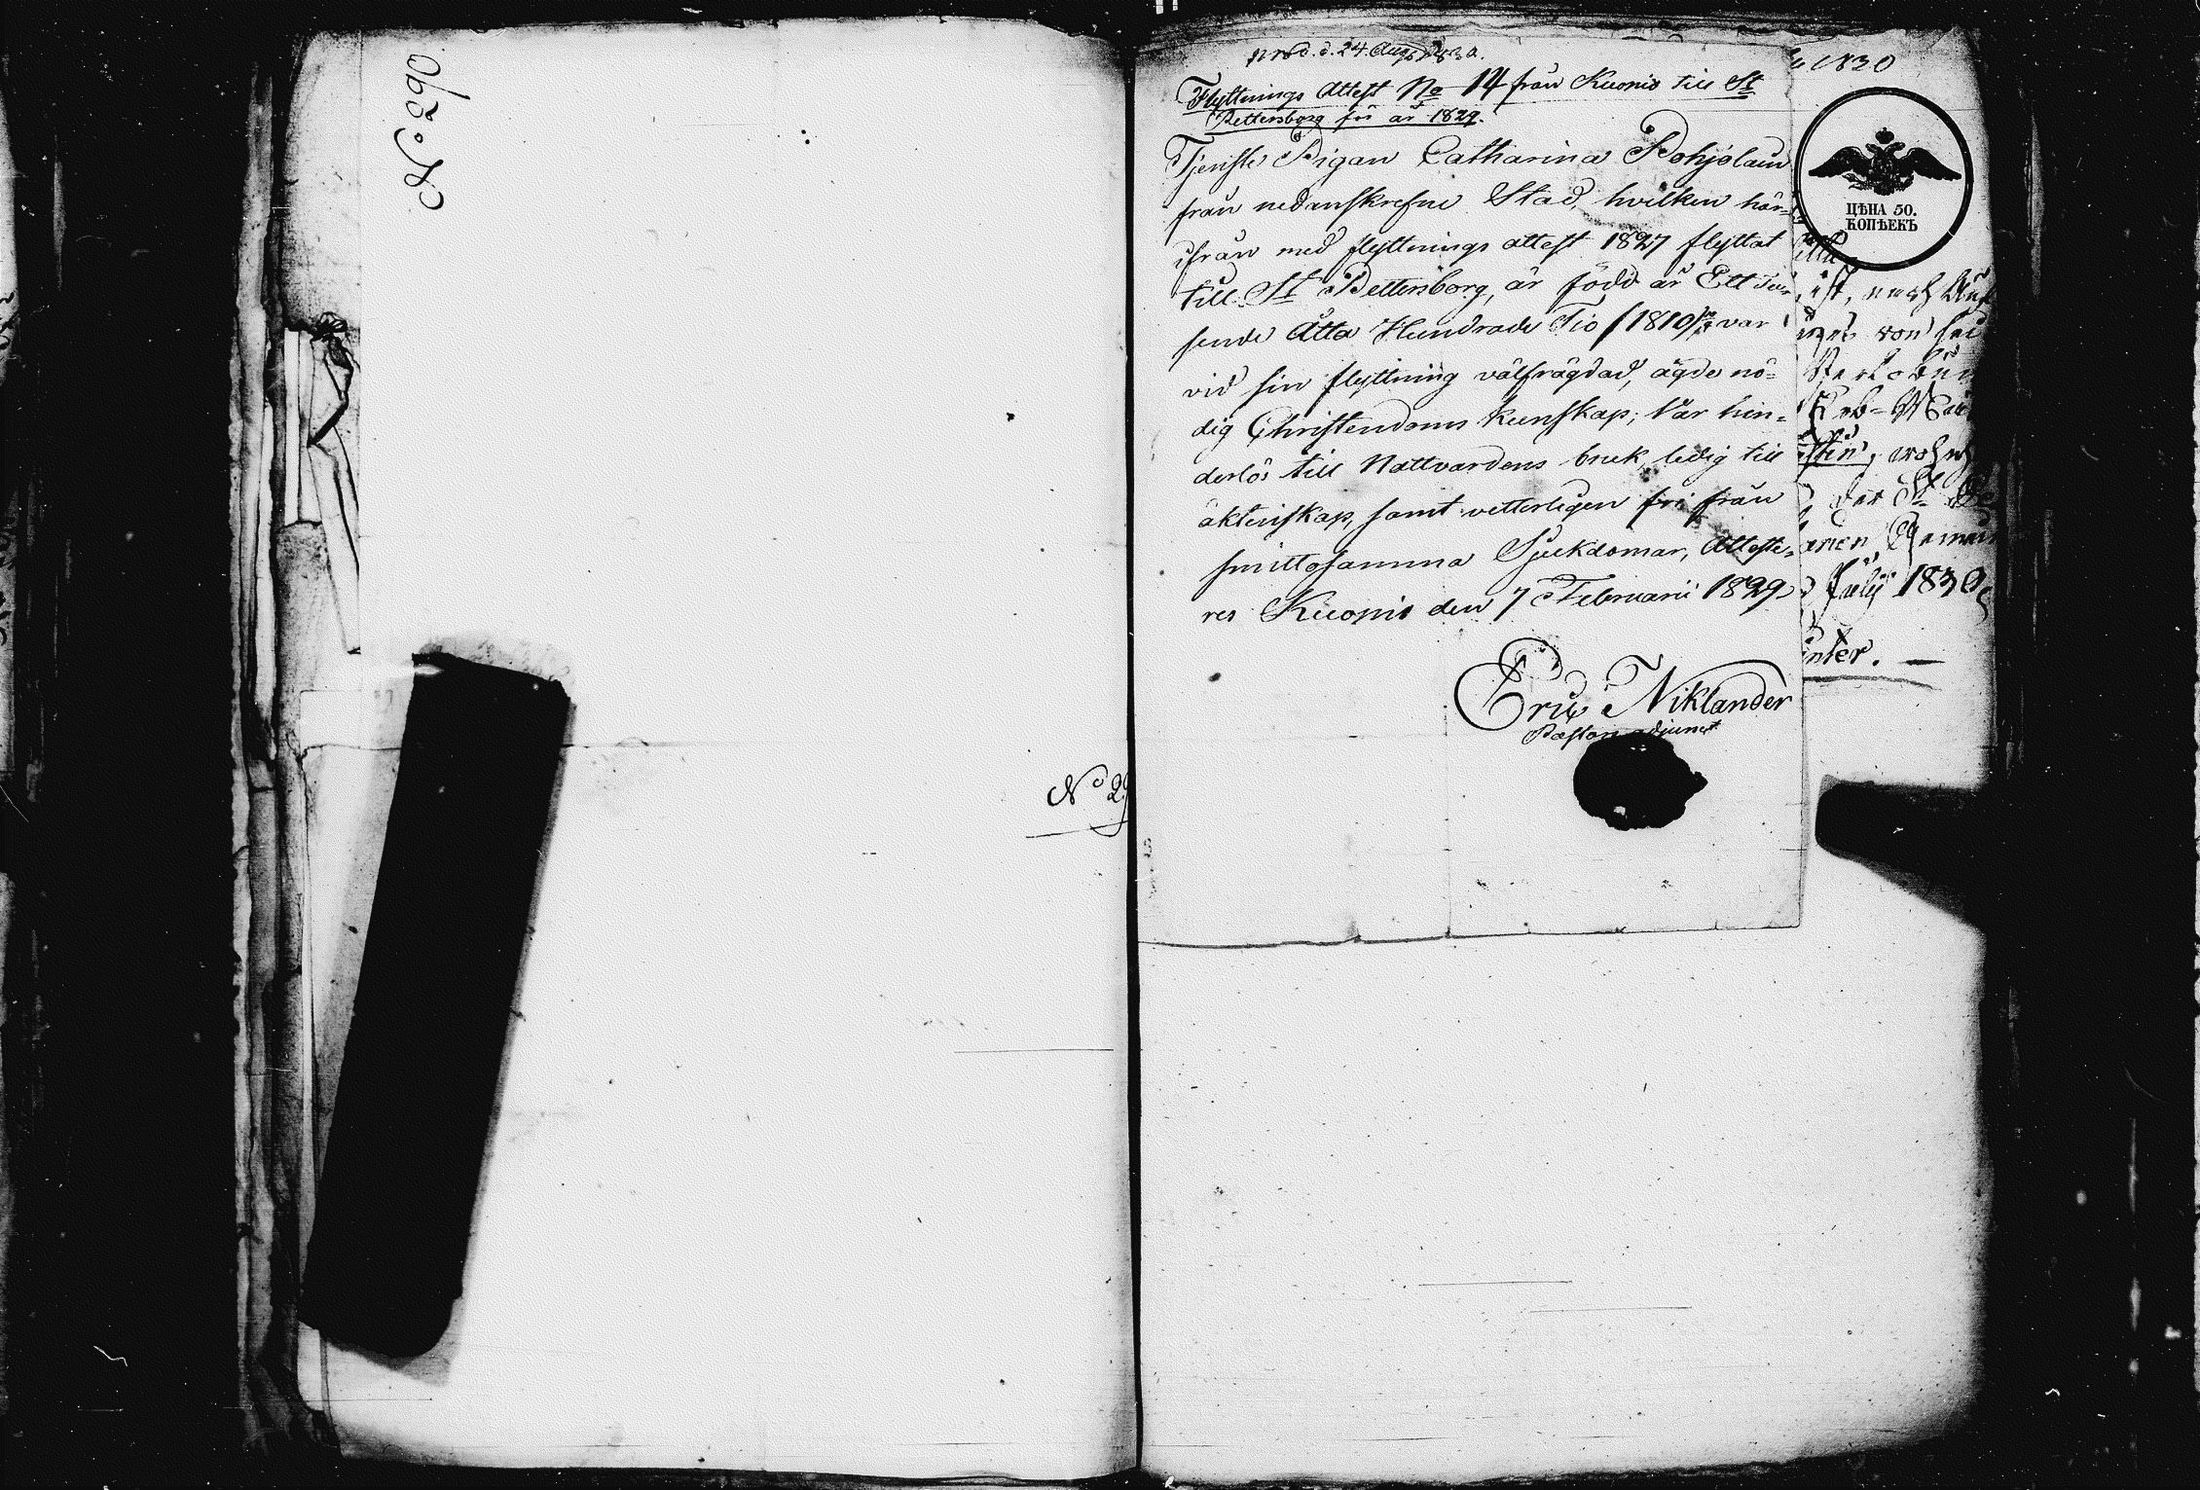 No 290
No 29
Flyttnings Attest No 14 från Kuopio till St
Pettersborg för år 1829.
Tjenste Pigan Catharina Pohjolain
från nedanskrefne Stad, hvilken här-
ifrån med flyttnings attest 1827 flyttat
till St Pettersborg, är född år Ett Tu-
sende Åtta Hundrade Tio /1810/ var
vid sin flyttning välfrägdad, ägde nö-
dig Christendoms kunskap, var hin-
derlös till Nattvardens bruk, ledig till
äktenskap, samt vetterligen fri från
smittosamma Sjukdomar, Atteste-
res Kuopio den 7 Februarii 1829
Eric Niklander
Pastors adjunct
1830
ЦѢНА 50.
КОПѢЕКЪ
ist, nach
von
wohn
der St
July 1830